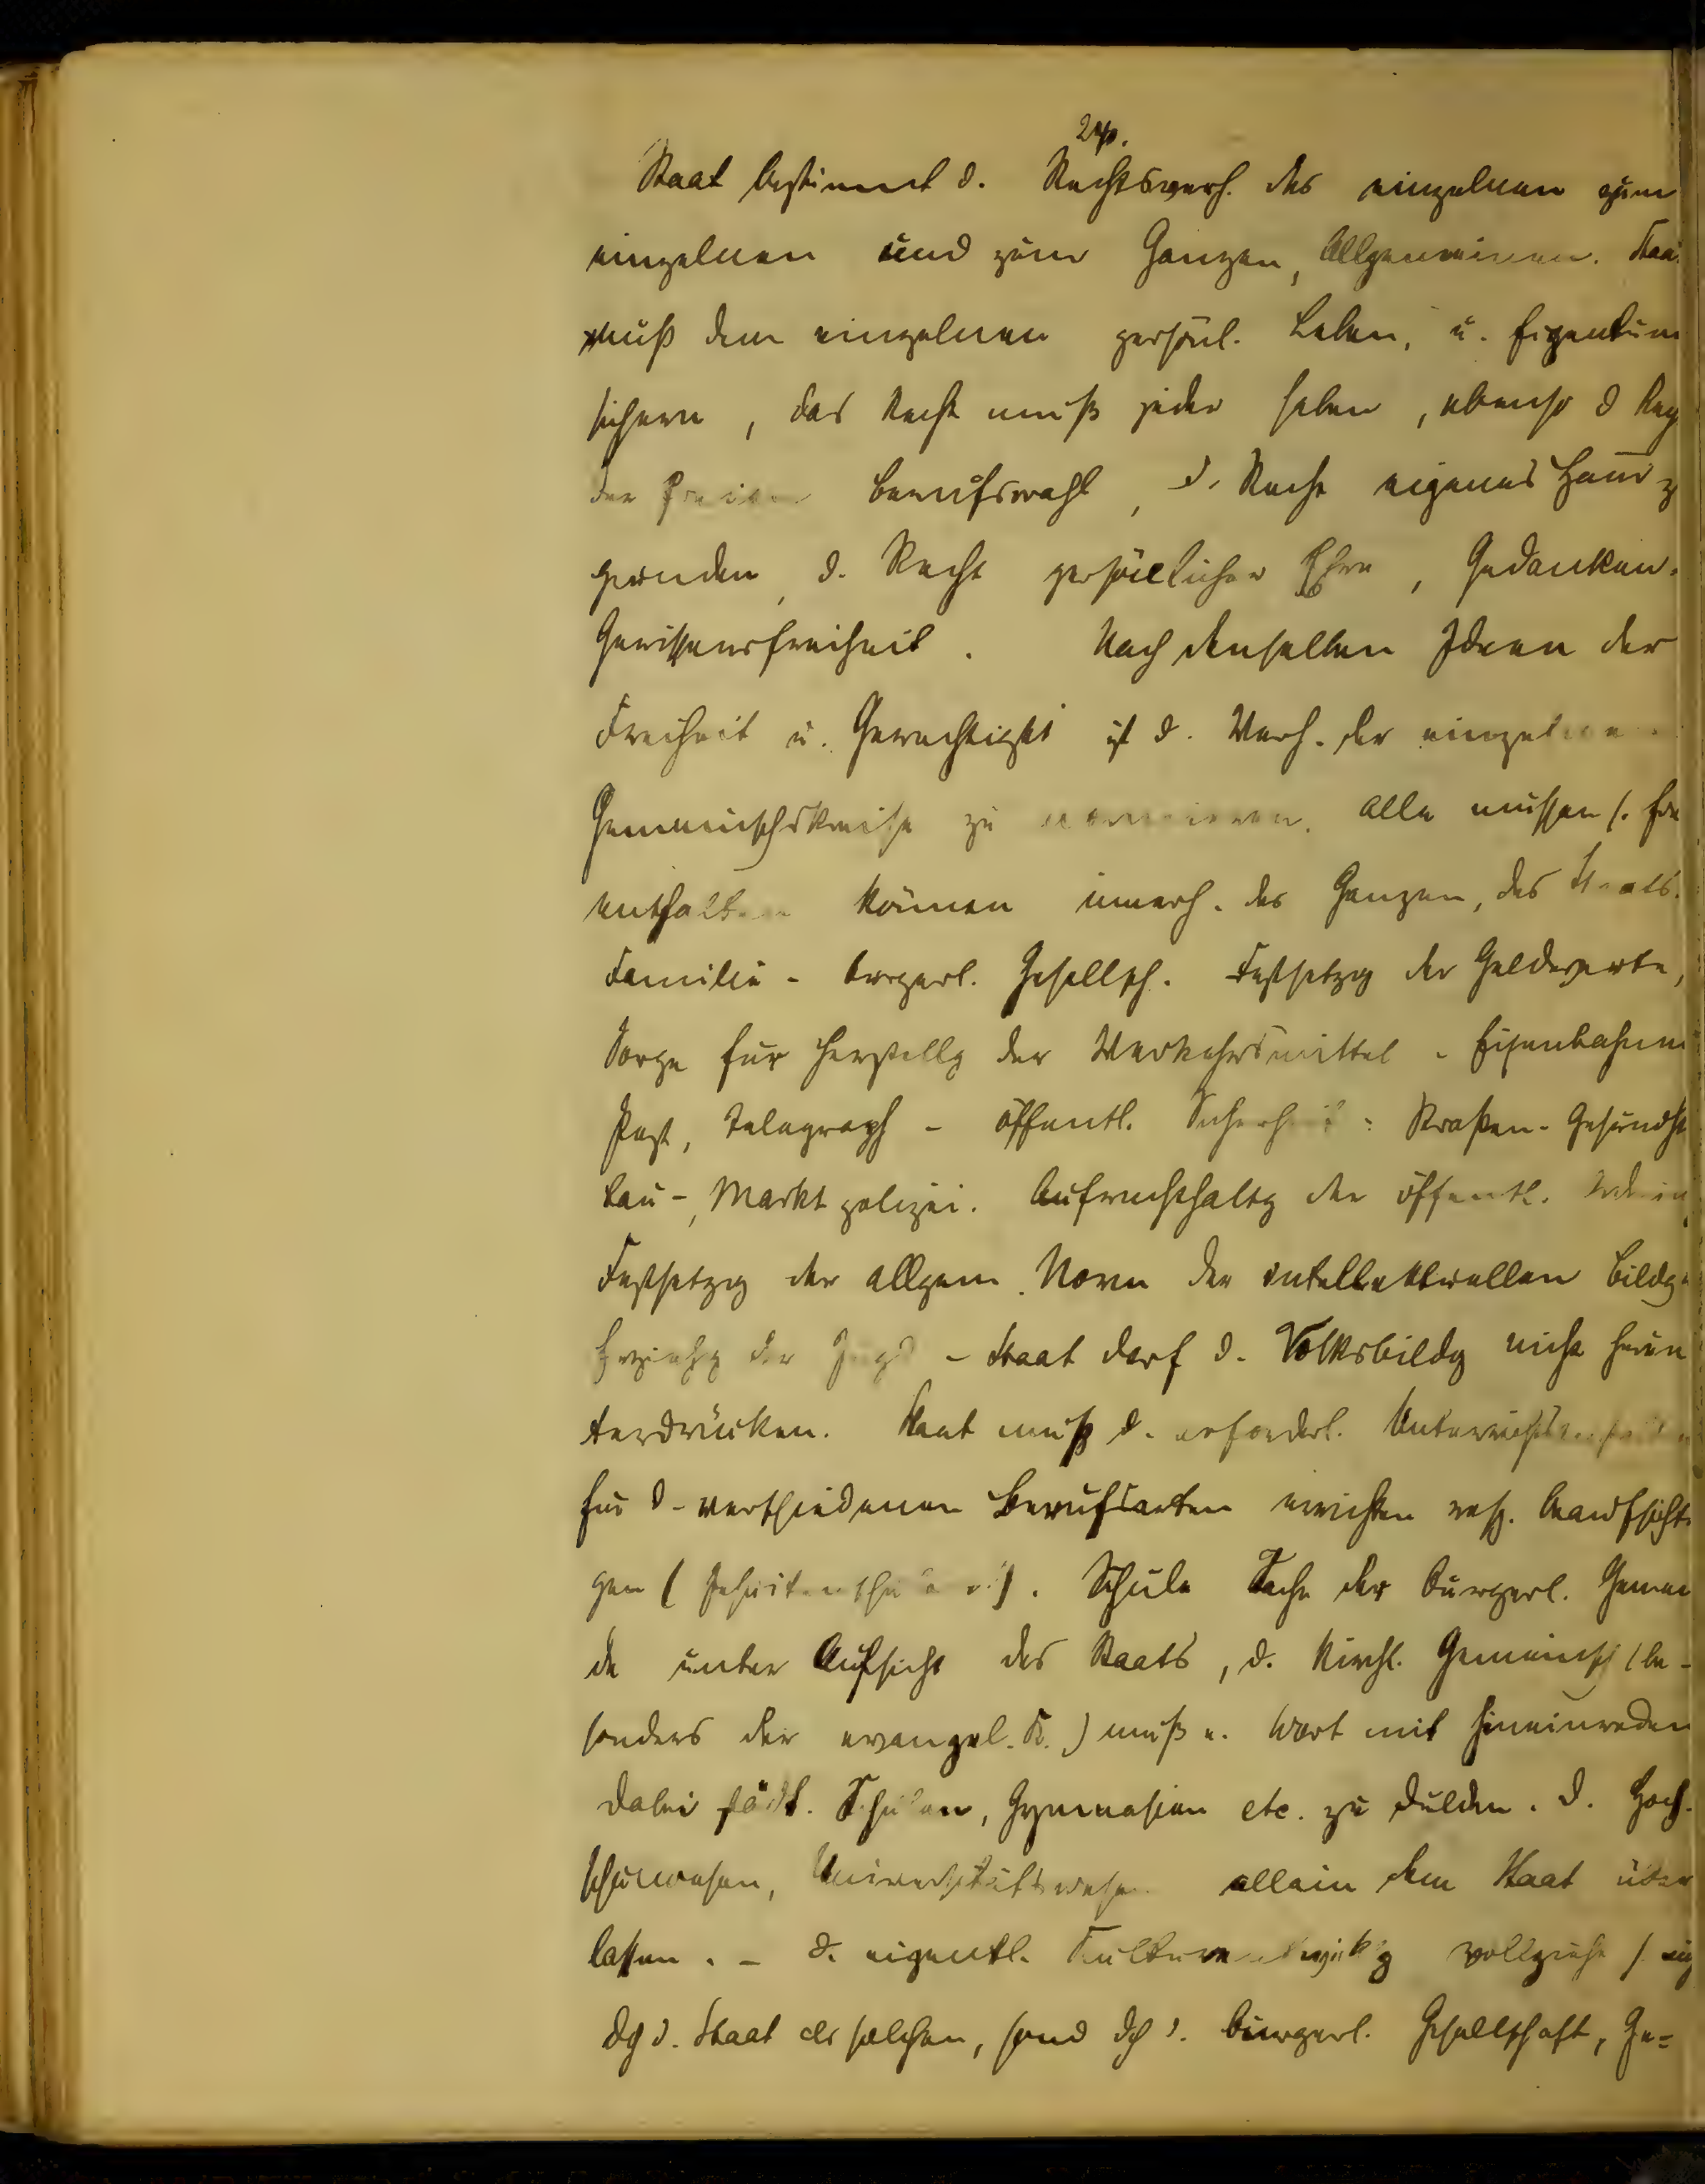 Staat bestimmt d. Rechtsverh. des einzelnen zum
einzelnen und zum Ganzen, Allgemeinen. Staat
muß dem einzelnen persönl. Leben, u. Eigentum
sichern, das Recht muß jeder haben, ebenso d
der freien Berufswahl, d. Recht eigenes Haus z
gründen, d. Recht persönlicher Ehre, Gedanken-
Gewissensfreiheit. Nach denselben Ideen der
Freiheit u. Gerechtigkt ist d. Verh. der einzelnen
Gemeinschskreise zu normieren. Alle müssen s. frei
entfalten können innerh. des Ganzen, des Staats.
Familie - bürgerl. Gesellsch. Festsetzg der Geldwerte,
Sorge für Herstellg der Verkehrsmittel - Eisenbahnen
Post, Telegraph - öffentl. Sicherheit: Straßen- Gesundh
Bau-, Marktpolizei. Aufrechthaltg der öffentl.
Festsetzg der allgem. Norm der intellektuellen Bildg
Erziehg der Jugd - Staat darf d. Volksbildg nicht herun
terdrücken. Staat muß d. erforderl. Unterrichtsanstalten
für d. verschiedenen Berufsarten errichten resp. beaufsichti
gen (Jesuitenschule). Schule Sache der bürgerl. Gemein
de unter Aufsicht des Staats, d. kirchl. Gemeinsch (be-
sonders der evangel. K.) muß e. Wort mit hineinreden
dabei städt. Schulen, Gymnasien etc. zu dulden. D. Hoch-
schulwesen, Universitätswesen allein dem Staat über
lassen. - d. eigentl. Kulturentwicklg vollzieht s.
dch d. Staat als solchen, sond dch d. bürgerl. Gesellschaft, Ge=